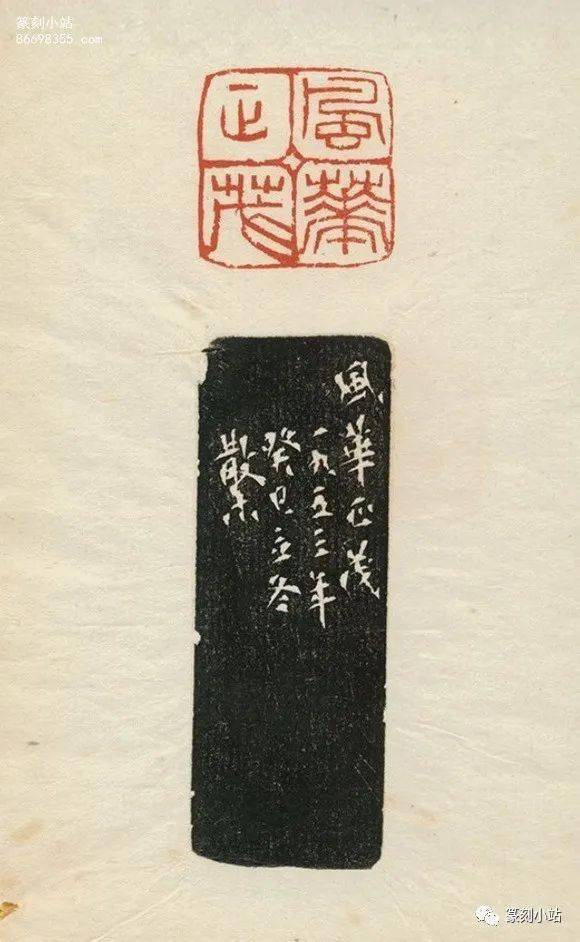 篆刻小站
86698355.com
風華
正茂
風華正茂
一九五三年
癸巳立冬
散木
篆刻小站